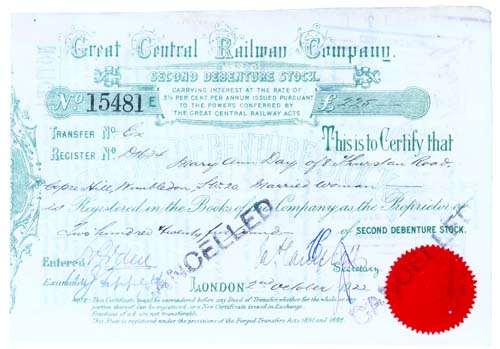 Great Central Railway Company.
SECOND DEBENTURE STOCK.
CARRYING INTEREST AT THE RATE OF
3½ PER CENT PER ANNUM ISSUED PURSUANT
TO THE POWERS CONFERRED BY
THE GREAT CENTRAL RAILWAY ACTS
No 15481 E
£ 225
TRANSFER No.
REGISTER No.
This is to Certify that
Mary Ann Day of 8 Thurstan Road,
Copse Hill, Wimbledon, S.W.20 Married Woman
is Registered in the Books of the Company as the Proprietor of
Two hundred & twenty five pounds
of SECOND DEBENTURE STOCK.
CANCELLED
CANCELLED
Entered
Examined
Secretary.
LONDON 2nd October 1922
NOTE: This Certificate must be surrendered before any Deed of Transfer, whether for the whole or any
portion thereof can be registered, or a New Certificate issued in Exchange.
Fractions of a £ are not transferable.
This Stock is registered under the provisions of the Forged Transfers Acts 1891 and 1892.